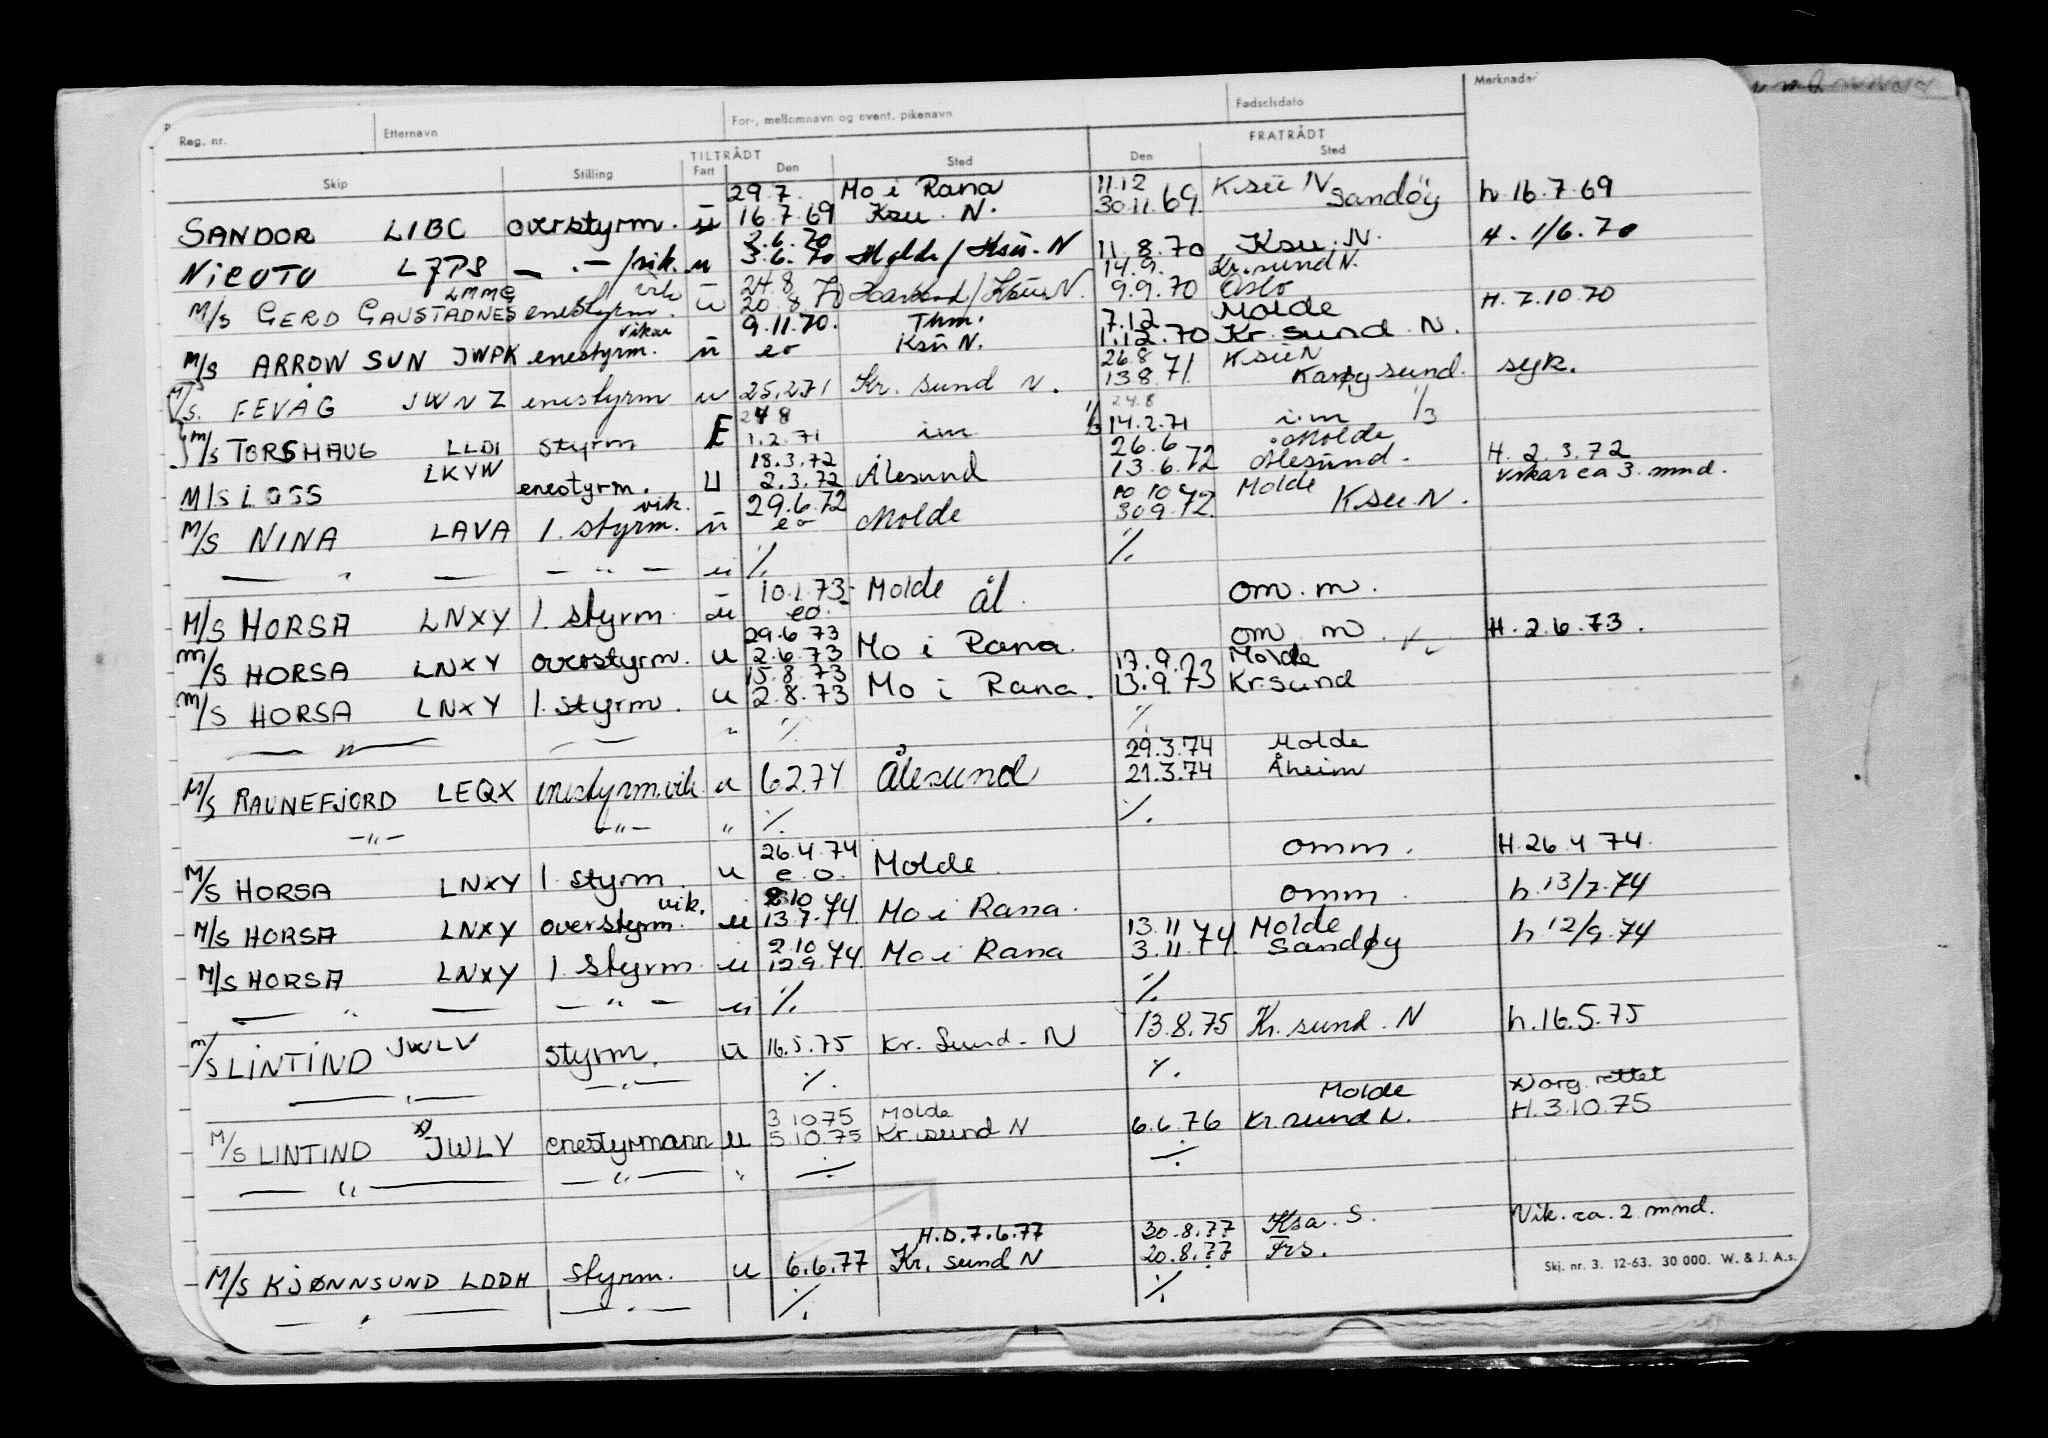 Reg. nr. Etternavn For-, mellomnavn og event. pikenavn Fødselsdato Merknader
TILTRÅDT FRATRÅDT
Skip Stilling Fart Den Sted Den Sted
29.7. Mo i Rana 11.12 Ksu N
SANDOR LIBC overstyrm. u 16.7.69 Ksu. N. 30.11.69 Sandøy h. 16.7.69
3.6.70
NICOTO — . — /vik. u 3.6.70 Molde / Ksu. N 11.8.70 Ksu. N. H. 1/6.70
LMMG vik 24.8 14.9. Kr.sund N.
M/S GERD GAUSTADNES enestyrm. u 20.8.70 / Ksu N. 9.9.70 Oslo
vikar 9.11.70. Thm. 7.12 Molde H. 7.10.70
M/S ARROW SUN JWPK enestyrm. u eo Ksu N. 1.12.70 Kr.sund. N.
26.8 Ksu N
M/S. FEVAG JWNZ enestyrm u 25.2.71 Kr. sund N. 13.8.71. sund. syk.
24 8 24.8
M/S TORSHAUG LLDI styrm E 1.2.71 i.m 1/3 14.2.71 i.m 1/3
18.3.72 26.6 Molde H. 2.3.72
M/S LOSS LKYW enestyrm. U 2.3.72 Ålesund 13.6.72 Ålesund. Vikar ca 3. mnd.
vik. 29.6.72 10.10 Molde
M/S NINA LAVA 1. styrm. u eo Molde 30.9.72. Ksu N.
— " — — " — u ./. ./.
10.1.73 Molde
M/S HORSA LNXY 1. styrm. u eo. Ål. om. m.
29.6.73
M/S HORSA LNXY overstyrm. u 2.6.73 Mo i Rana. om m. H. 2.6.73.
15.8.73 17.9. Molde
M/S HORSA LNXY 1. styrm. u 2.8.73 Mo i Rana. 13.9.73 Kr.sund
— " — — " ./. ./.
29.3.74 Molde
M/S RAUNEFJORD LEQX enestyrm. vik u 6.2.74 Ålesund 21.3.74 Åheim
— " — — " — " ./. ./.
26.4.74
M/S HORSA LNXY 1 styrm. u e.o. Molde omm. H. 26.4.74.
vik. 10
M/S HORSA LNXY overstyrm. u 13.7.74. Mo i Rana. omm. h. 13/7.74
2.10 13.11 Molde
M/S HORSA LNXY 1. styrm u 12.9.74. Mo i Rana 3.11.74. Sandøy h 12/9.74
— " — — " — u ./. ./.
M/S LINTIND JWLV styrm. u 16.5.75 Kr. Sund. N 13.8.75 Kr. sund. N h. 16.5.75
— " — — " — ./. ./.
3 10 75 Molde Molde x) org. rettet
M/S LINTIND x) JWLV enestyrmann u 5.10.75 Kr.sund N 6.6.76 Kr sund N. H. 3.10.75
— " — — " — " ./. ./.
H.D.7.6.77 30.8.77 Ksa. S. Vik. ca. 2 mnd.
M/S KJØNNSUND LDDH styrm. u 6.6.77 Kr. sund N 20.8.77 Frs.
— " — — " — ./. ./.
Skj. nr. 3. 12-63. 30 000. W. & J. A.s.